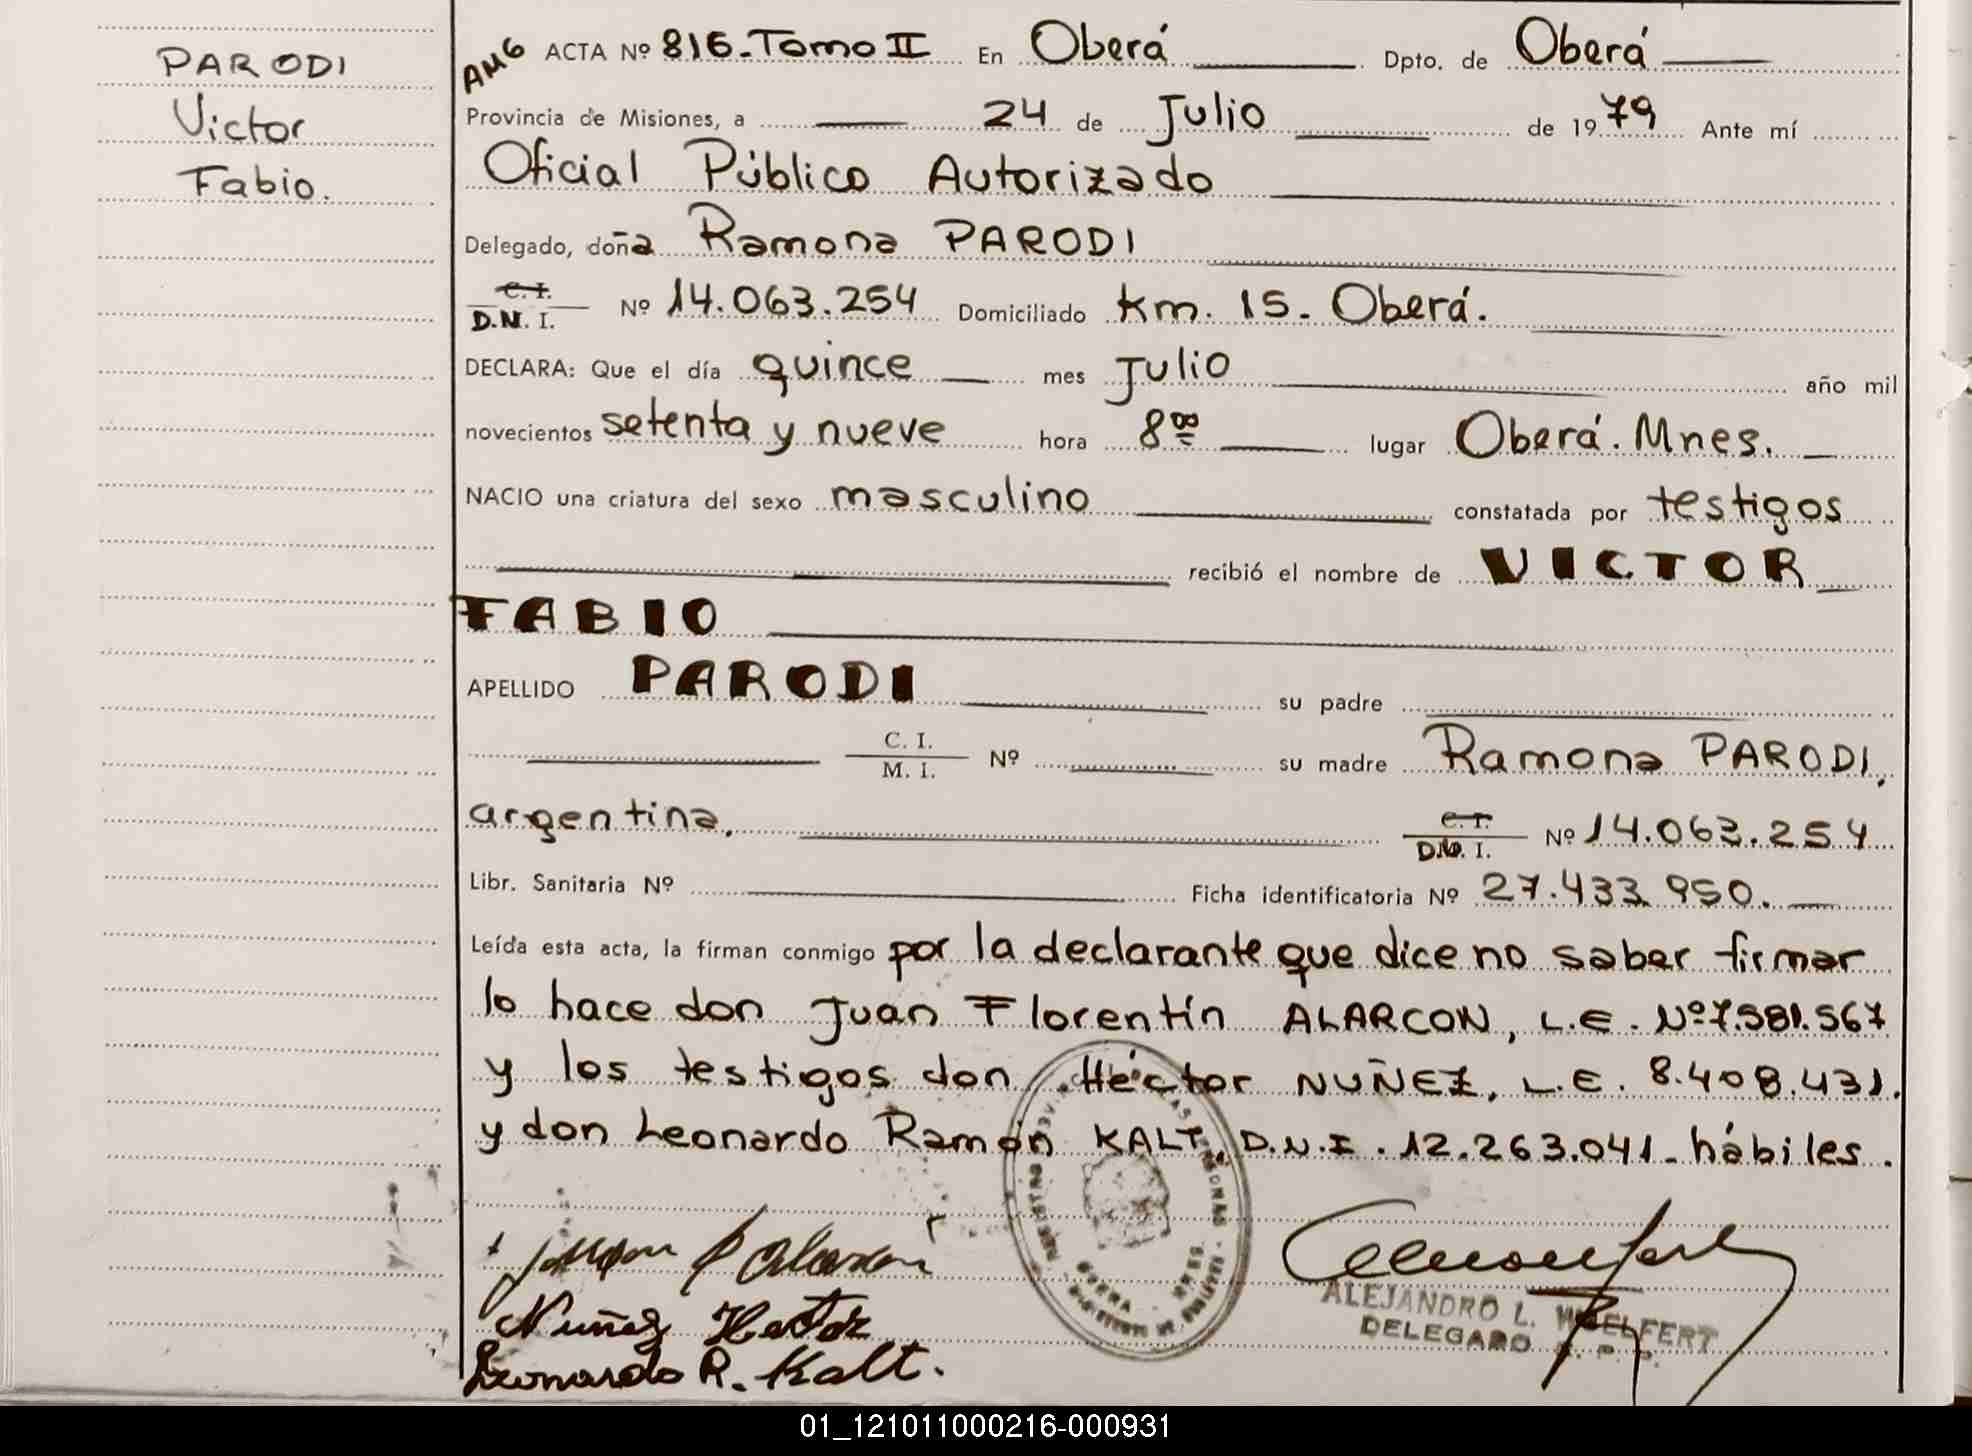 PARODI
Victor
Fabio.
AMG ACTA Nº 816-Tomo II En Oberá Dpto. de Oberá
Provincia de Misiones, a 24 de Julio de 1979 Ante mí
Oficial Público Autorizado
Delegado, doña Ramona PARODI
C. I. D.N.I. Nº 14.063.254 Domiciliado Km. 15 - Oberá.
DECLARA: Que el día quince mes Julio año mil
novecientos setenta y nueve hora 8⁰⁰ lugar Oberá. Mnes.
NACIO una criatura del sexo masculino constatada por testigos
recibió el nombre de VICTOR
FABIO
APELLIDO PARODI su padre
C. I. M. I. Nº su madre Ramona PARODI,
argentina. C. I. D.N.I. Nº 14.063.254
Libr. Sanitaria Nº Ficha identificatoria Nº 27.433.950.
Leída esta acta, la firman conmigo por la declarante que dice no saber firmar
lo hace don Juan Florentín ALARCON, L.E. Nº 7.581.567
y los testigos don Héctor NUÑEZ, L.E. 8.408.431.
y don Leonardo Ramón KALT, D.N.I. 12.263.041- hábiles.
Nuñez Hector
Leonardo R. Kalt.
ALEJANDRO L. WOELFERT
DELEGADO
01_121011000216-000931